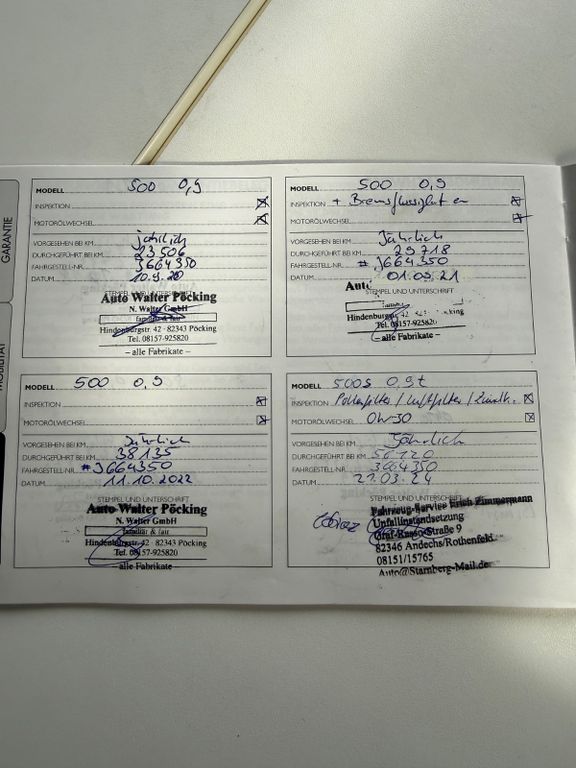 GARANTIE
MODELL 500 0,9
INSPEKTION
MOTORÖLWECHSEL
VORGESEHEN BEI KM jährlich
DURCHGEFÜHRT BEI KM 23 506
FAHRGESTELL-NR. J664350
DATUM 10.9.20
STEMPEL UND UNTERSCHRIFT
Auto Walter Pöcking
N. Walter GmbH
familiär & fair
Hindenburgstr. 42 · 82343 Pöcking
Tel. 08157-925820
– alle Fabrikate –
MODELL 500 0,9
INSPEKTION + Bremsflüssigkeit en
MOTORÖLWECHSEL
VORGESEHEN BEI KM Jährlich
DURCHGEFÜHRT BEI KM 29 718
FAHRGESTELL-NR. # J664350
DATUM 01.09.21
STEMPEL UND UNTERSCHRIFT
Hindenburgstr. 42
Tel. 08157-925820
– alle Fabrikate –
MODELL 500 0,9
INSPEKTION
MOTORÖLWECHSEL
VORGESEHEN BEI KM Jährlich
DURCHGEFÜHRT BEI KM 38 135
FAHRGESTELL-NR. # J664350
DATUM 11.10.2022
STEMPEL UND UNTERSCHRIFT
Auto Walter Pöcking
N. Walter GmbH
familiär & fair
Hindenburgstr. 42 · 82343 Pöcking
Tel. 08157-925820
– alle Fabrikate –
MODELL 500s 0,9t
INSPEKTION Pollenfilter / Luftfilter / Zündk.
MOTORÖLWECHSEL 0W-30
VORGESEHEN BEI KM Jährlich
DURCHGEFÜHRT BEI KM 56 120
FAHRGESTELL-NR. J664350
DATUM 21.03.24
STEMPEL UND UNTERSCHRIFT
Fahrzeug-Service Erich Zimmermann
Unfallinstandsetzung
Graf-Rasso-Straße 9
82346 Andechs/Rothenfeld
08151/15765
Auto@Starnberg-Mail.de